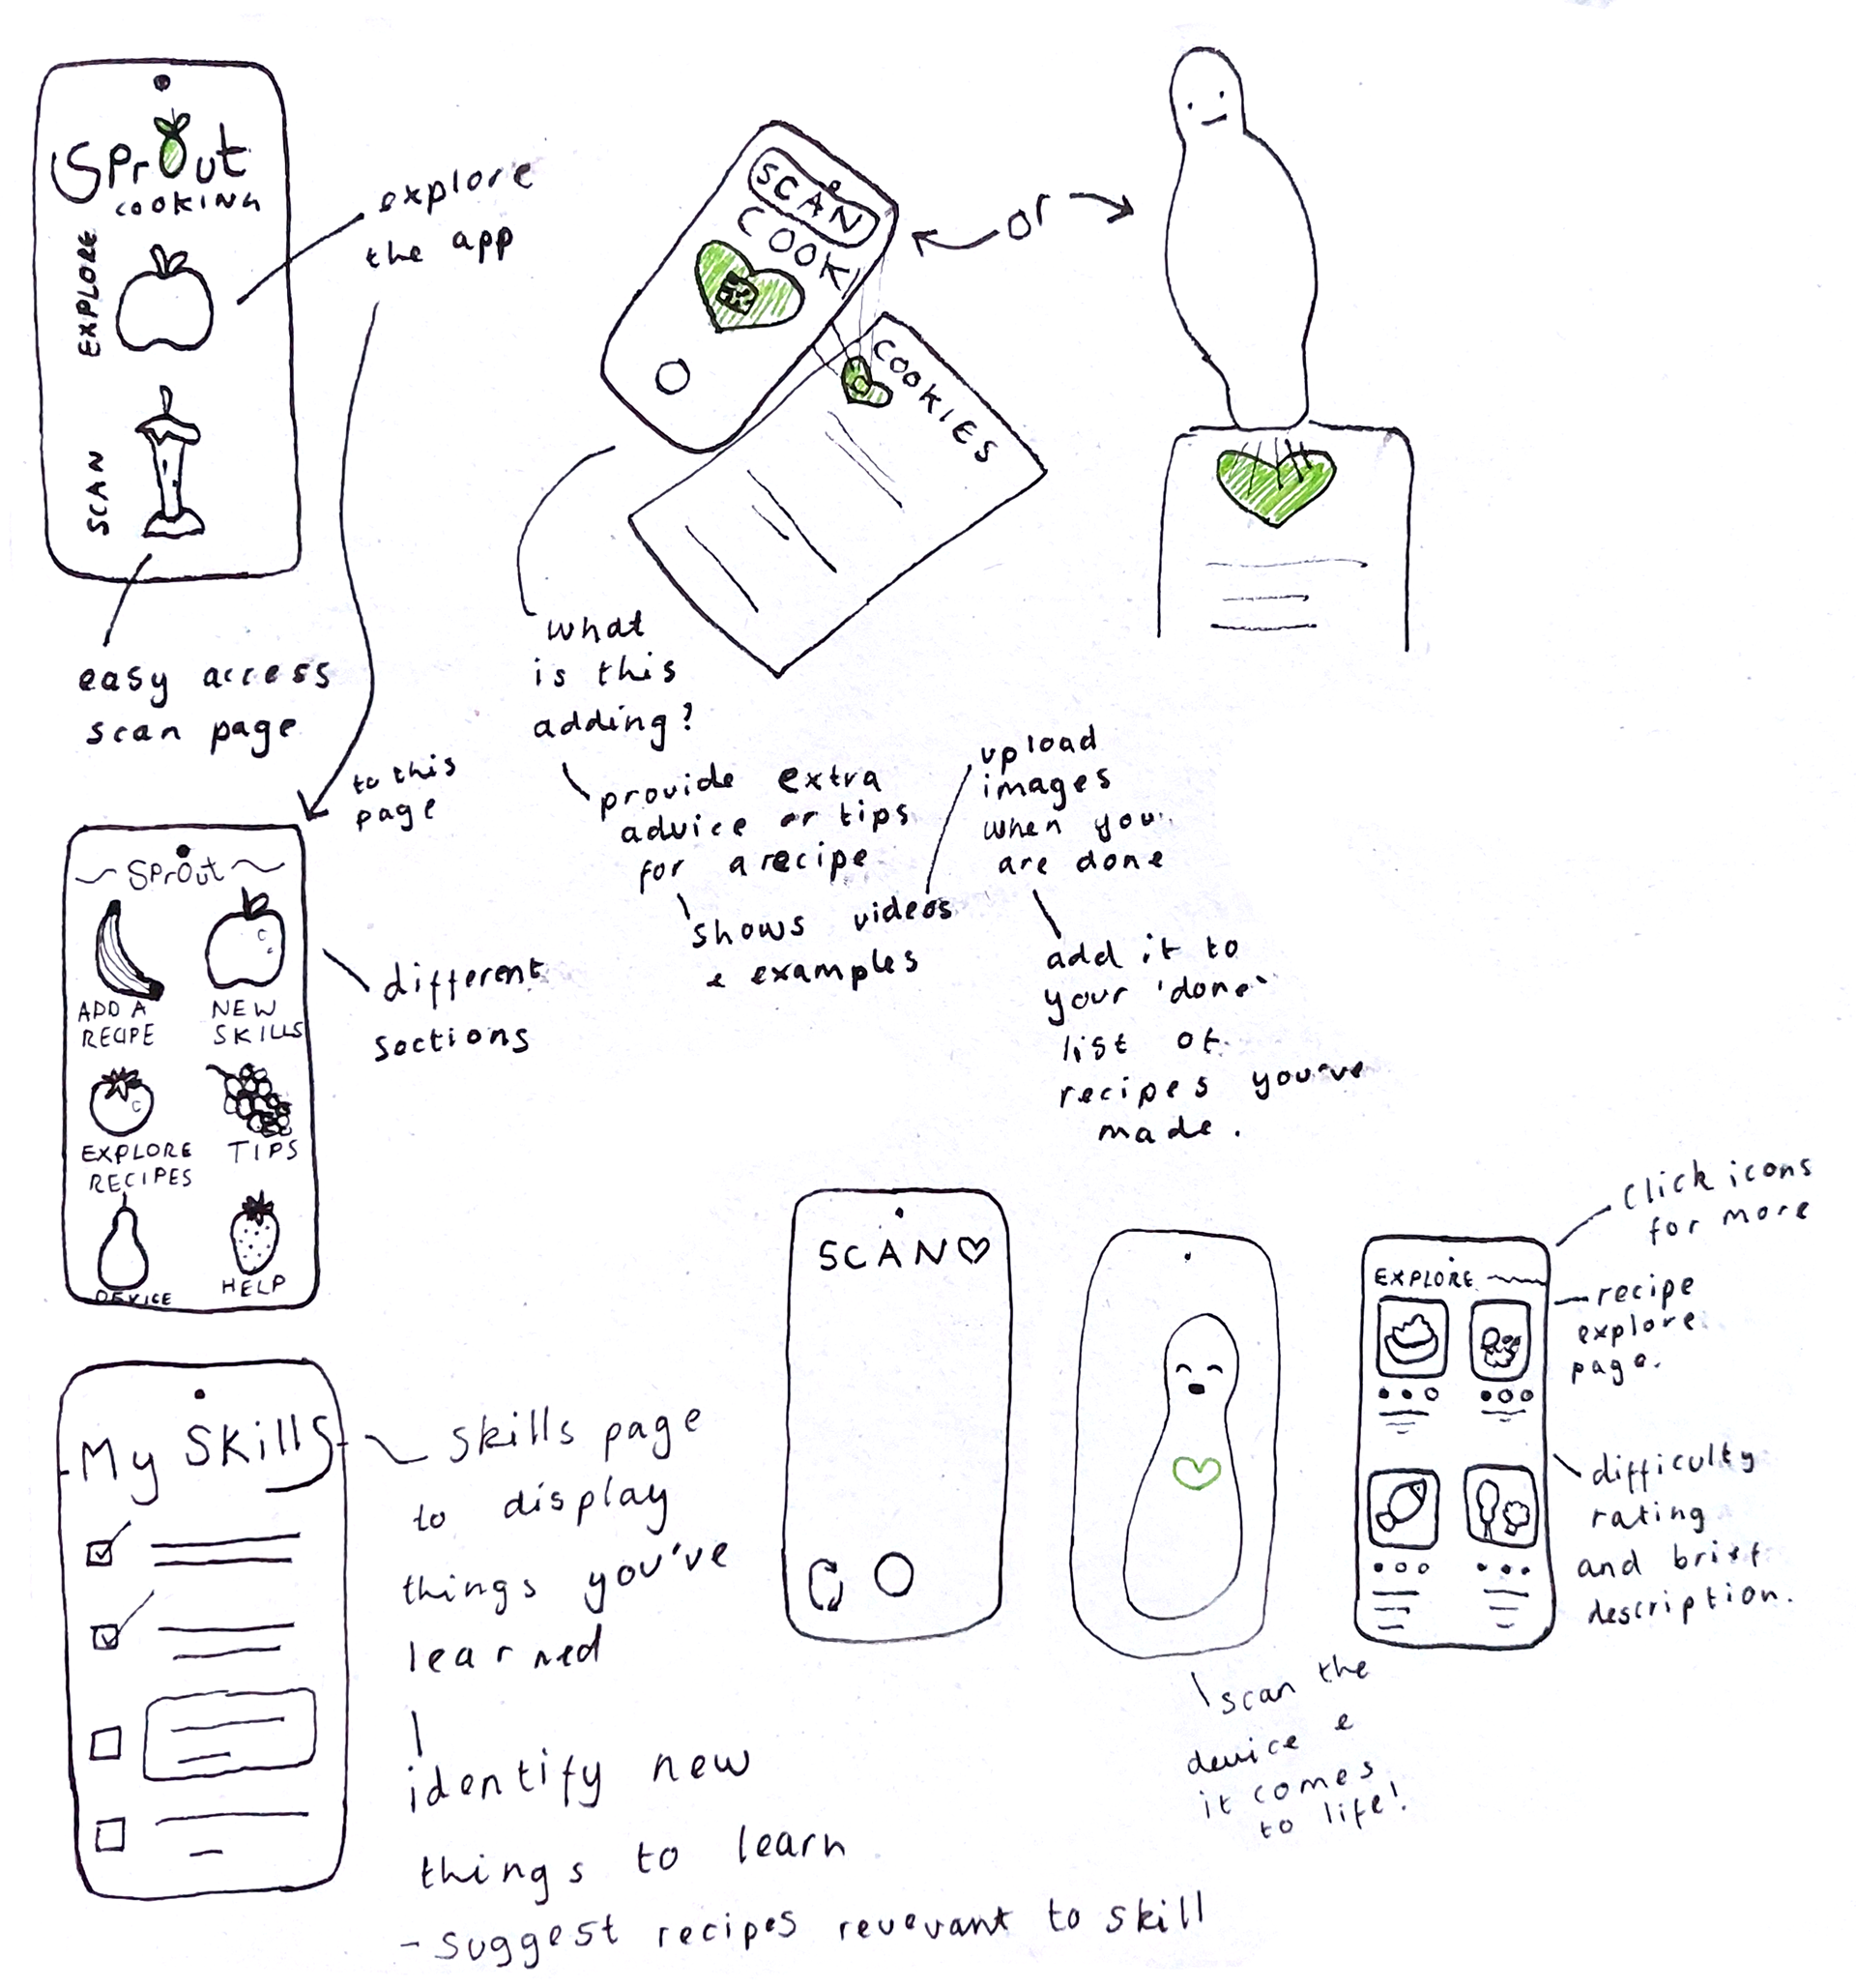 Sprout
COOKING
EXPLORE
SCAN
explore
the app
easy access
scan page
to this
page
SCAN
COOK
COOKIES
or
what
is this
adding?
provide extra
advice or tips
for a recipe
shows videos
& examples
upload
images
when you
are done
add it to
your 'done'
list of
recipes you've
made.
Sprout
ADD A
RECIPE
NEW
SKILLS
EXPLORE
RECIPES
TIPS
DEVICE
HELP
different
sections
My Skills
skills page
to display
things you've
learned
identify new
things to learn
- suggest recipes revevant to skill
SCAN
scan the
device &
it comes
to life!
EXPLORE
Click icons
for more
recipe
explore
page.
difficulty
rating
and brief
description.